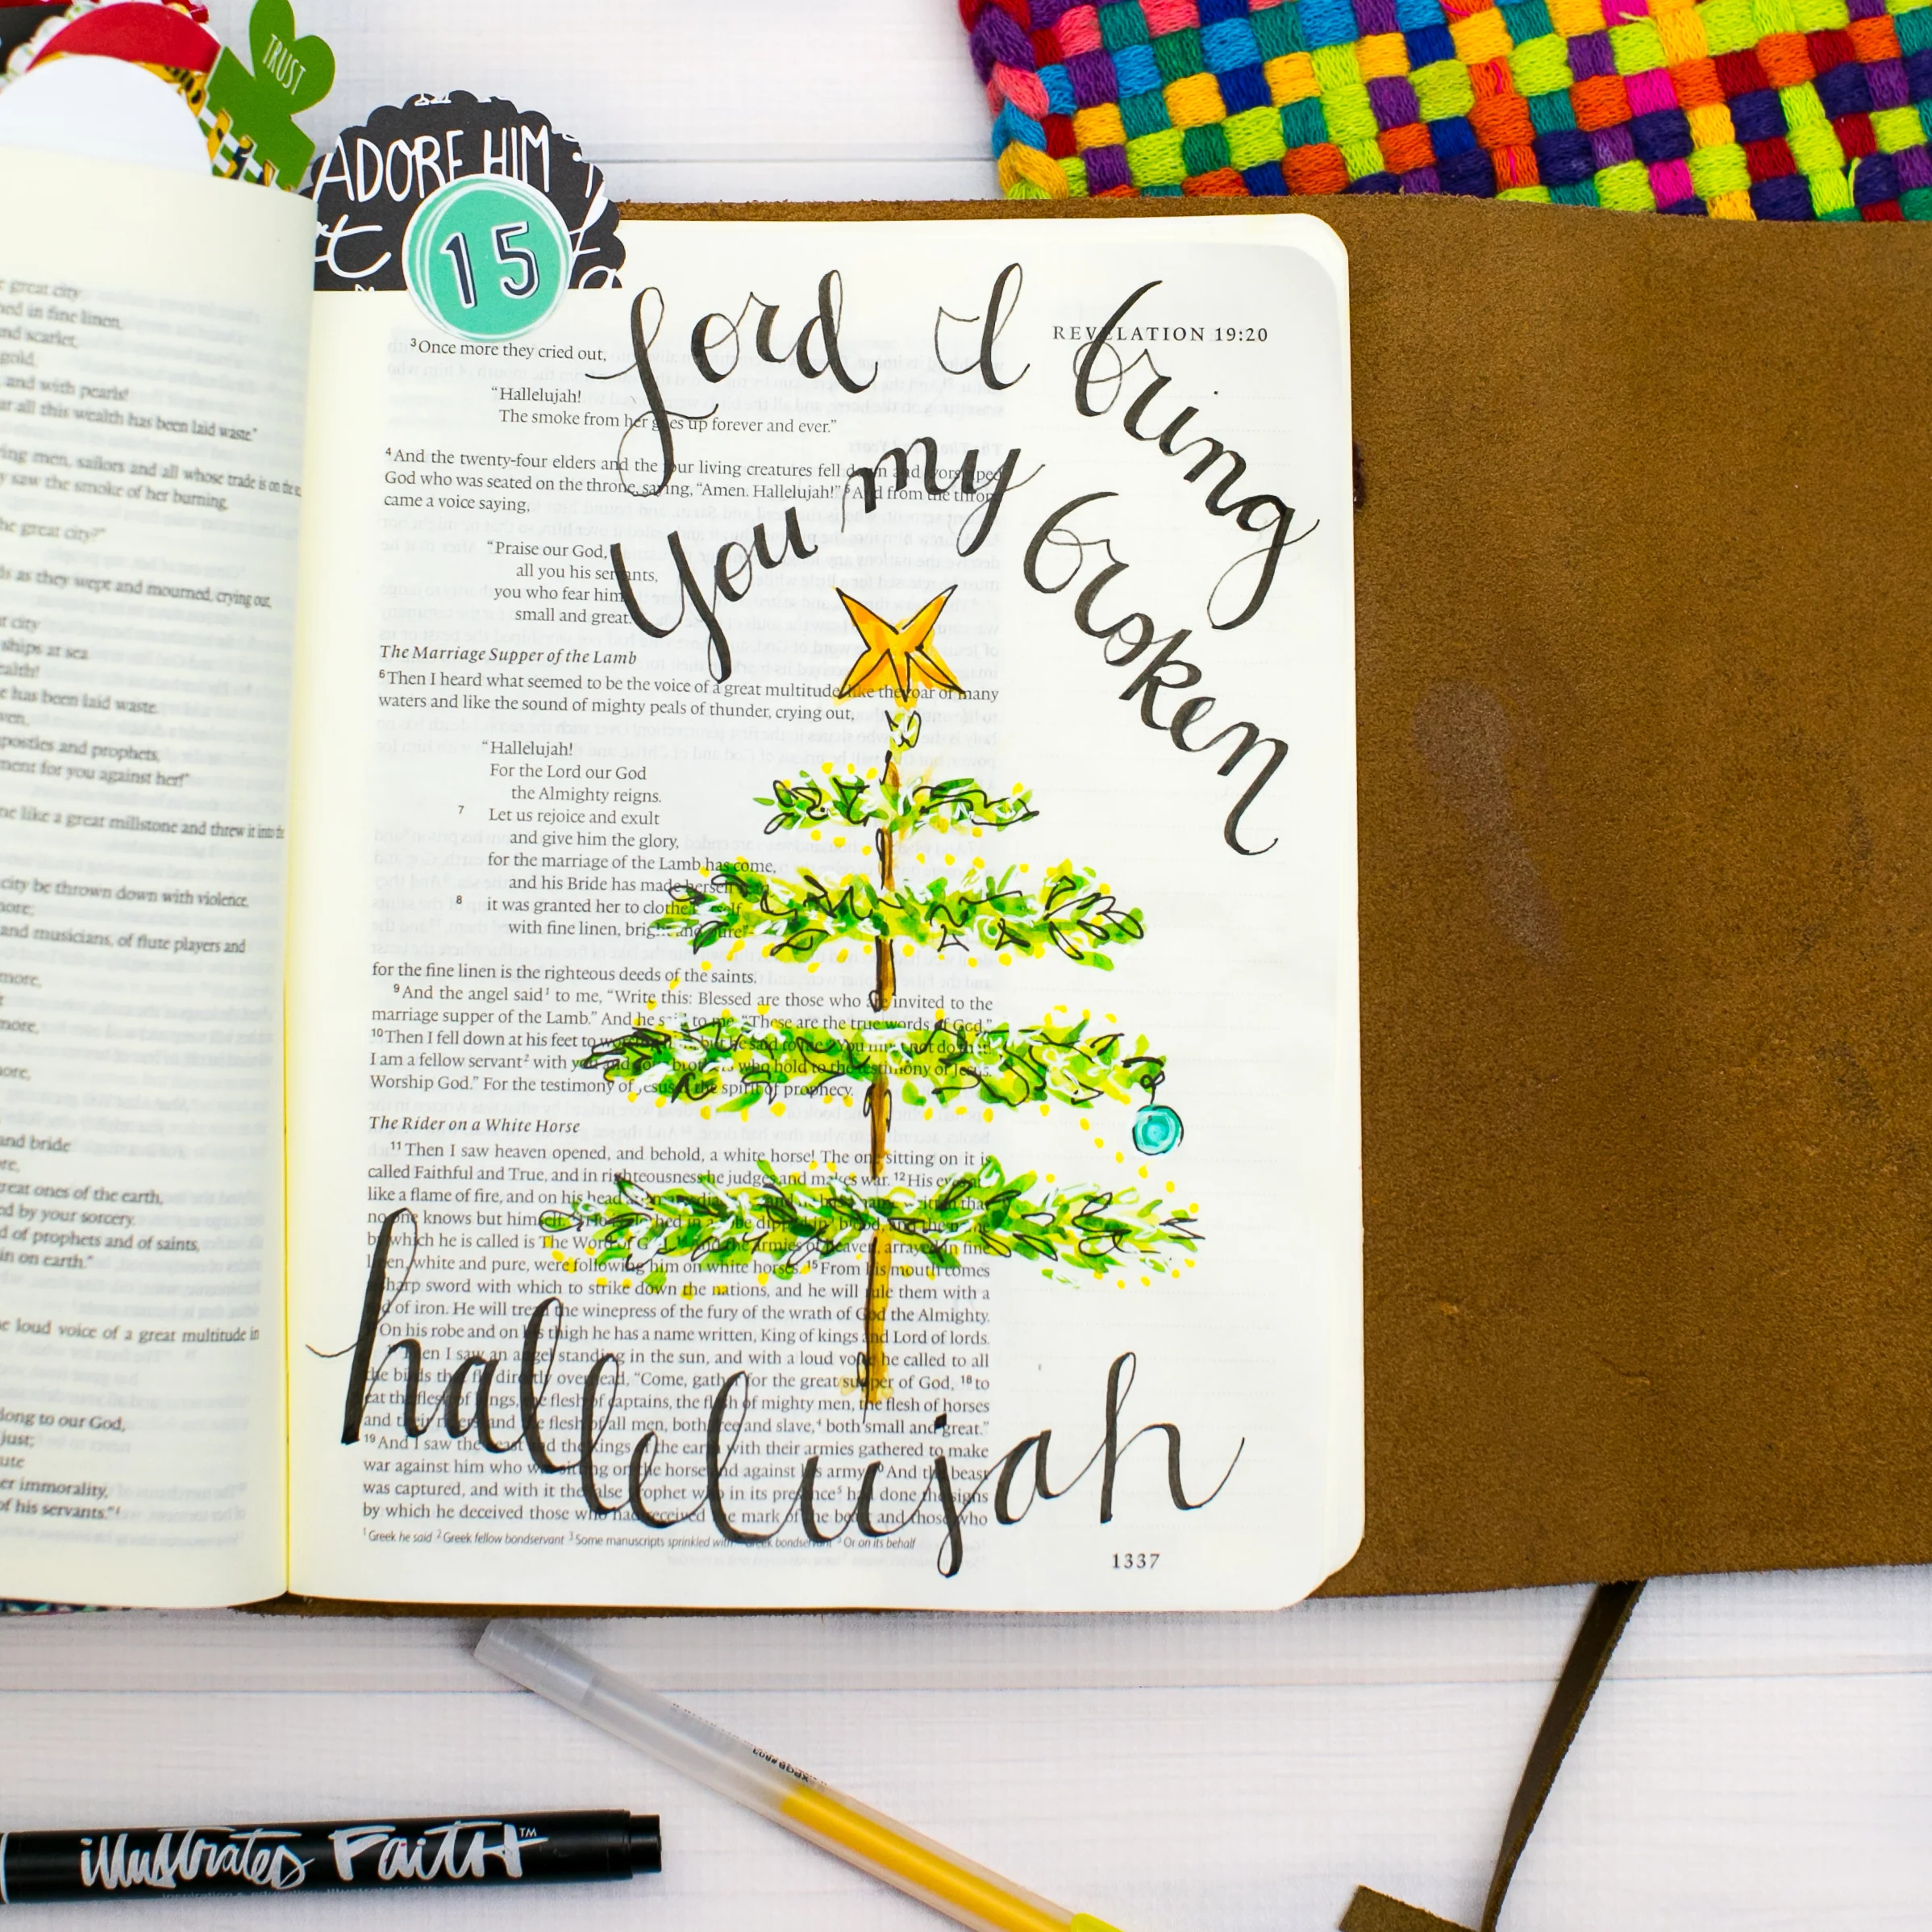 TRUST
ADORE HIM
15
Lord I bring
You my broken
hallelujah
REVELATION 19:20
3 Once more they cried out,
"Hallelujah!
The smoke from her goes up forever and ever."
4 And the twenty-four elders and the four living creatures fell down and worshiped
God who was seated on the throne, saying, "Amen. Hallelujah!" 5 And from the throne
came a voice saying,
"Praise our God,
all you his servants,
you who fear him,
small and great."
The Marriage Supper of the Lamb
6 Then I heard what seemed to be the voice of a great multitude, like the roar of many
waters and like the sound of mighty peals of thunder, crying out,
"Hallelujah!
For the Lord our God
the Almighty reigns.
7 Let us rejoice and exult
and give him the glory,
for the marriage of the Lamb has come,
and his Bride has made herself
8 it was granted her to clothe herself
with fine linen, bright and pure"–
for the fine linen is the righteous deeds of the saints.
9 And the angel said¹ to me, "Write this: Blessed are those who are invited to the
marriage supper of the Lamb." And he said to me, "These are the true words of God."
10 Then I fell down at his feet to worship him, but he said to me, "You must not do that!
I am a fellow servant² with you and your brothers who hold to the testimony of Jesus.
Worship God." For the testimony of Jesus is the spirit of prophecy.
The Rider on a White Horse
11 Then I saw heaven opened, and behold, a white horse! The one sitting on it is
called Faithful and True, and in righteousness he judges and makes war. 12 His eyes
like a flame of fire, and on his head are many diadems, and he has a name written that
no one knows but himself. 13 He is clothed in a robe dipped in³ blood, and the name
by which he is called is The Word of God. 14 And the armies of heaven, arrayed in fine
linen, white and pure, were following him on white horses. 15 From his mouth comes
a sharp sword with which to strike down the nations, and he will rule them with a
rod of iron. He will tread the winepress of the fury of the wrath of God the Almighty.
On his robe and on his thigh he has a name written, King of kings and Lord of lords.
17 Then I saw an angel standing in the sun, and with a loud voice he called to all
the birds that fly directly overhead, "Come, gather for the great supper of God, 18 to
eat the flesh of kings, the flesh of captains, the flesh of mighty men, the flesh of horses
and their riders, and the flesh of all men, both free and slave,⁴ both small and great."
19 And I saw the beast and the kings of the earth with their armies gathered to make
war against him who was sitting on the horse and against his army. 20 And the beast
was captured, and with it the false prophet who in its presence⁵ had done the signs
by which he deceived those who had received the mark of the beast and those who
1 Greek he said 2 Greek fellow bondservant 3 Some manuscripts sprinkled with 4 Greek bondservant 5 Or on its behalf
1337
great city
in fine linen,
and scarlet,
gold,
and with pearls!
all this wealth has been laid waste."
men, sailors and all whose trade is on the
saw the smoke of her burning,
the great city?"
as they wept and mourned, crying out,
city
ships at sea
wealth!
has been laid waste.
apostles and prophets,
for you against her!"
like a great millstone and threw it into the
city be thrown down with violence,
more;
and musicians, of flute players and
more,
more,
more,
and bride
more,
great ones of the earth,
by your sorcery.
of prophets and of saints,
on earth."
loud voice of a great multitude in
belong to our God,
just;
her immorality,
of his servants."
illustrated FaitH™